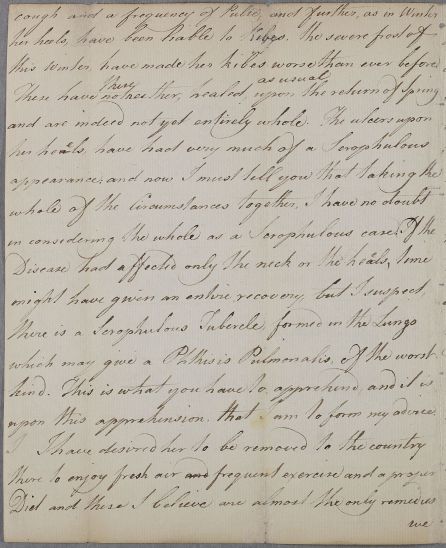 cough and a frequency of Pulse, and further, as in Winter
her heels, have been liable to Kibes. the severe frost of
this Winter, have made her kibes worse than ever before
These have they not neither, healed as usual, upon the return of Spring
and are indeed not yet entirely whole. The ulcers upon
her heals, have had very much of a Scrophulous
appearance; and now I must tell you that taking the
whole of the Circumstances together, I have no doubt
in considering the whole as a Scrophulous case. If the
Disease had affected only the neck or the heals, time
might have given an entire recovery, but I suspect,
there is a Scrophulous Tubercle, formed in the Lungs
which may give a Phthisis Pulmonalis, of the worst
kind. This is what you have to apprehend, and it is
upon this apprehension that I am to form my advice
I have desired her to be removed to the country
there to enjoy fresh air and frequent exercise and a proper
Diet and these I believe are almost the only remedies
we